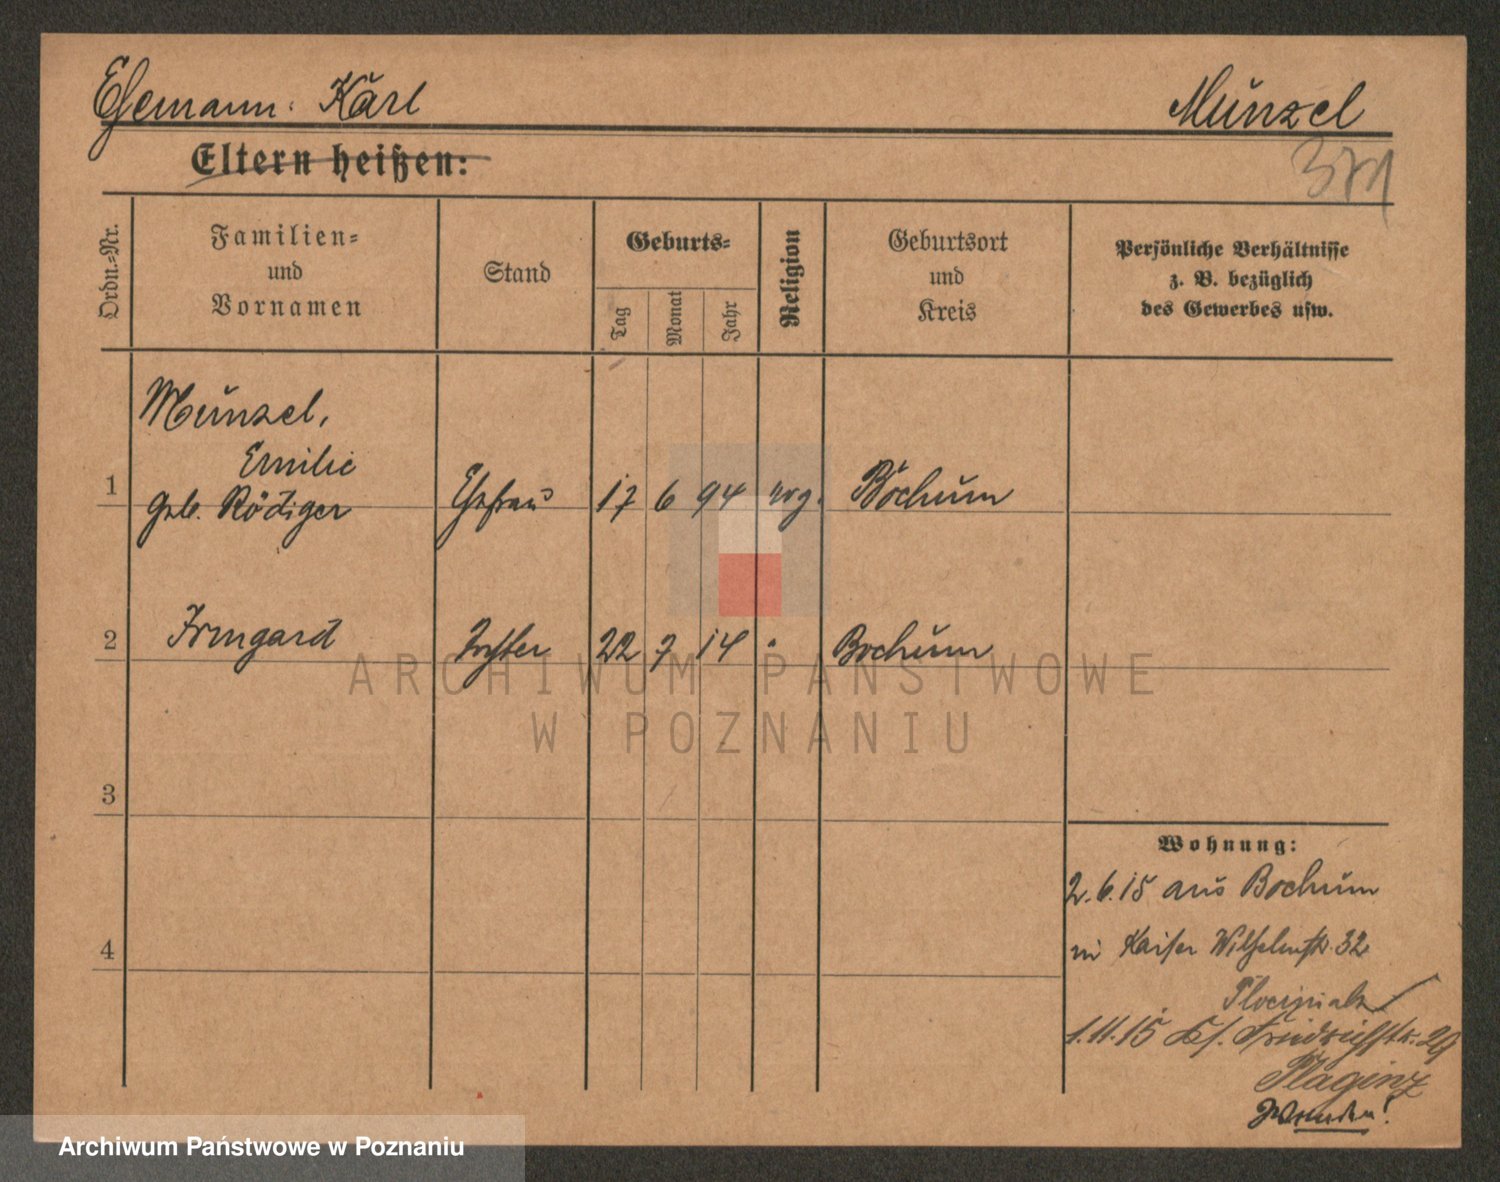 Ehemann: Karl
Munzel
Eltern heißen:
371
Ordn.=Nr.
Familien=
und
Vornamen
Stand
Geburts=
Tag
Monat
Jahr
Religion
Geburtsort
und
Kreis
Persönliche Verhältnisse
z. B. bezüglich
des Gewerbes usw.
Munzel,
Emilie
1 geb. Rödiger Ehefrau 17 6 94 evg. Bochum
2 Irmgard Tochter 22 7 14 " Bochum
3
4
Wohnung:
2.6.15 aus Bochum
in Kaiser Wilhelmstr. 32
1.11.15 Friedrichstr. 29
ARCHIWUM PAŃSTWOWE
W POZNANIU
Archiwum Państwowe w Poznaniu